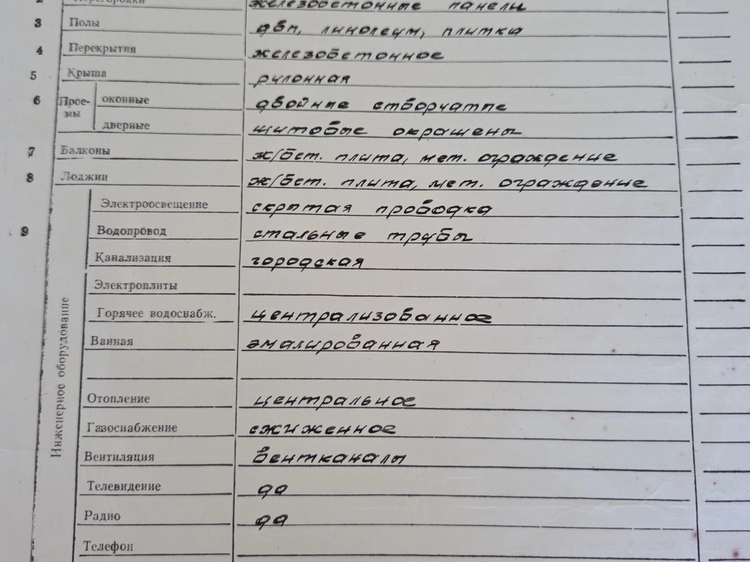 2 Перегородки железобетонные панели
3 Полы двп, линолеум, плитка
4 Перекрытия железобетонное
5 Крыша рулонная
6 Прое-мы оконные двойные створчатые
дверные щитовые окрашены
7 Балконы ж/бет. плита, мет. ограждение
8 Лоджии ж/бет. плита, мет. ограждение
9 Инженерное оборудование
Электроосвещение скрытая проводка
Водопровод стальные трубы
Канализация городская
Электроплиты
Горячее водоснабж. централизованное
Ванная эмалированная
Отопление центральное
Газоснабжение сжиженное
Вентиляция вентканалы
Телевидение да
Радио да
Телефон